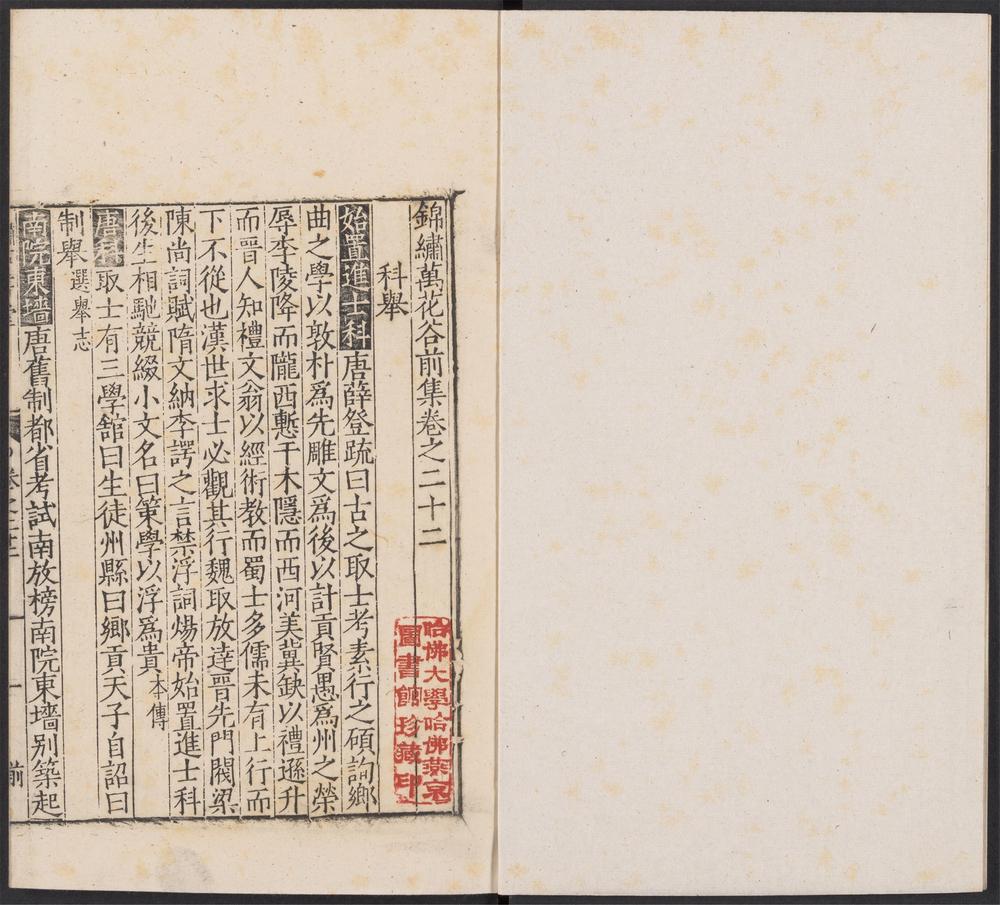 錦繡萬花谷前集卷之二十二
科舉
始置進士科唐薛登疏曰古之取士考素行之碩詢鄉
曲之學以敦朴爲先雕文爲後以計貢賢愚爲州之榮
辱李陵降而隴西慙干木隱而西河美冀缺以禮遜升
而晉人知禮文翁以經術教而蜀士多儒未有上行而
下不從也漢世求士必觀其行魏取放達晉先門閥梁
陳尚詞賦隋文納李諤之言禁浮詞煬帝始置進士科
後生相馳競綴小文名曰策學以浮爲貴本傳
唐科取士有三學舘曰生徒州縣曰鄉貢天子自詔曰
制舉選舉志
南院東墻唐舊制都省考試南放榜南院東墻别築起
卷之廿二
一
前
哈佛大學哈佛燕京
圖書館珍藏印